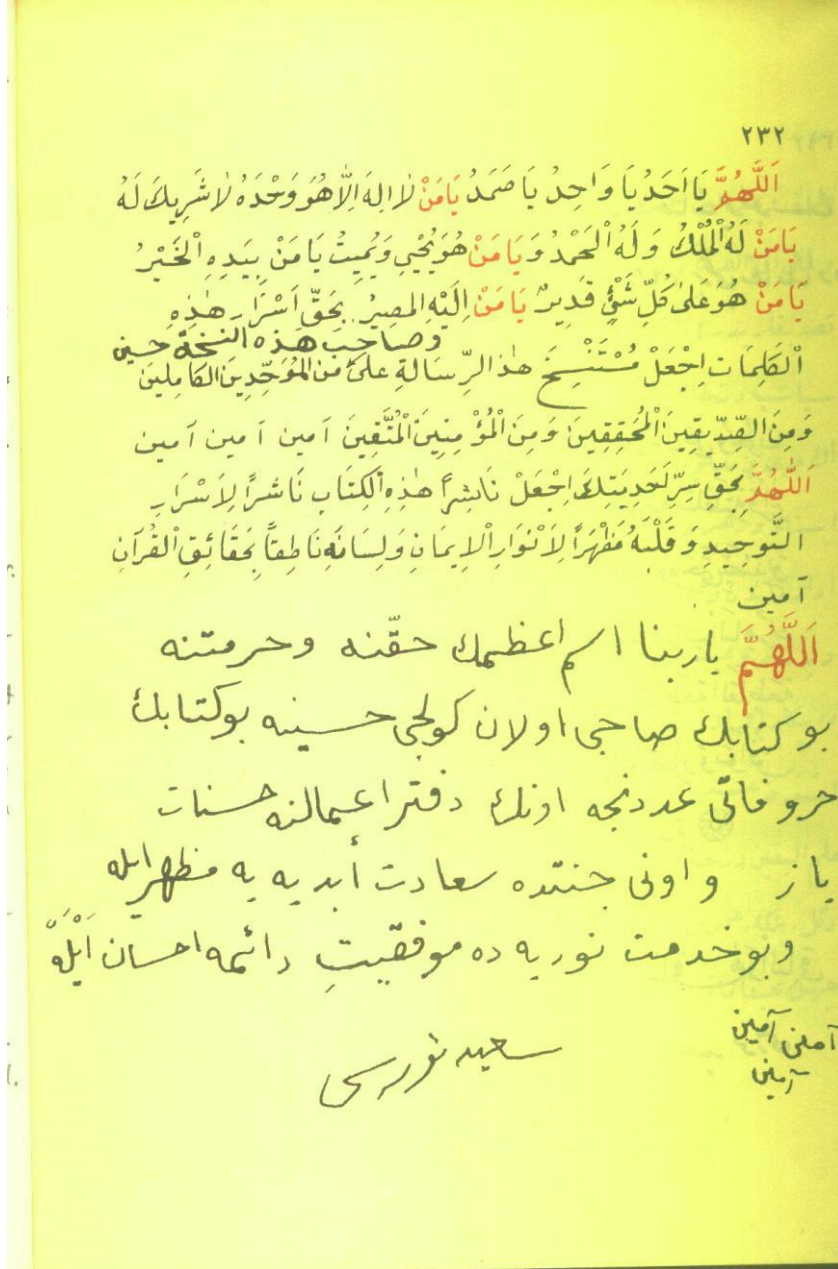 ٢٣٢
اَللّٰهُمَّ يَا اَحَدُ يَا وَاحِدُ يَا صَمَدُ يَا مَنْ لَا اِلٰهَ اِلَّا هُوَ وَحْدَهُ لَا شَرِيكَ لَهُ
يَا مَنْ لَهُ الْمُلْكُ وَلَهُ الْحَمْدُ وَيَا مَنْ هُوَ يُحْيِي وَيُمِيتُ يَا مَنْ بِيَدِهِ الْخَيْرُ
يَا مَنْ هُوَ عَلٰى كُلِّ شَيْءٍ قَدِيرٌ يَا مَنْ اِلَيْهِ الْمَصِيرُ بِحَقِّ اَسْرَارِ هٰذِهِ
وصاحب هذه النسخة حسين
الْكَلِمَاتِ اِجْعَلْ مُسْتَنْسِخَ هٰذ الرِّسَالَةِ علىّ من الْمُوَحِّدِينَ الْكَامِلِينَ
وَمِنَ الصِّدِّيقِينَ الْمُحَقِّقِينَ وَمِنَ الْمُؤْمِنِينَ الْمُتَّقِينَ آمين آمين آمين آمين
اَللّٰهُمَّ بِحَقِّ سِرِّ اَحَدِيَتِكَ اِجْعَلْ نَاشِراً هٰذِهِ الْكِتَابِ نَاشراً لِاَسْرَارِ
التَّوحِيدِ وَقَلْبَهُ مَظْهَراً لِاَنْوَارِ الْاِيمَانِ وَلِسَانَهُ نَاطِقاً بِحَقَائِقِ الْقُرْآنِ
آمين
اَللّٰهُمَّ ياربنا اسم اعظمك حقّنه وحرمتنه
بو كتابك صاحبى اولان كولجى حسينه بوكتابك
حروفاتى عددنجه اونك دفتر اعمالنه حسنات
ياز و اونى جنتده سعادت أبديه يه مظهر ايله
وبوخدمت نوريه ده موفقيتِ دائمه احسان اَيْلَهْ
آمين آمين
آمين
سعيد نورسى